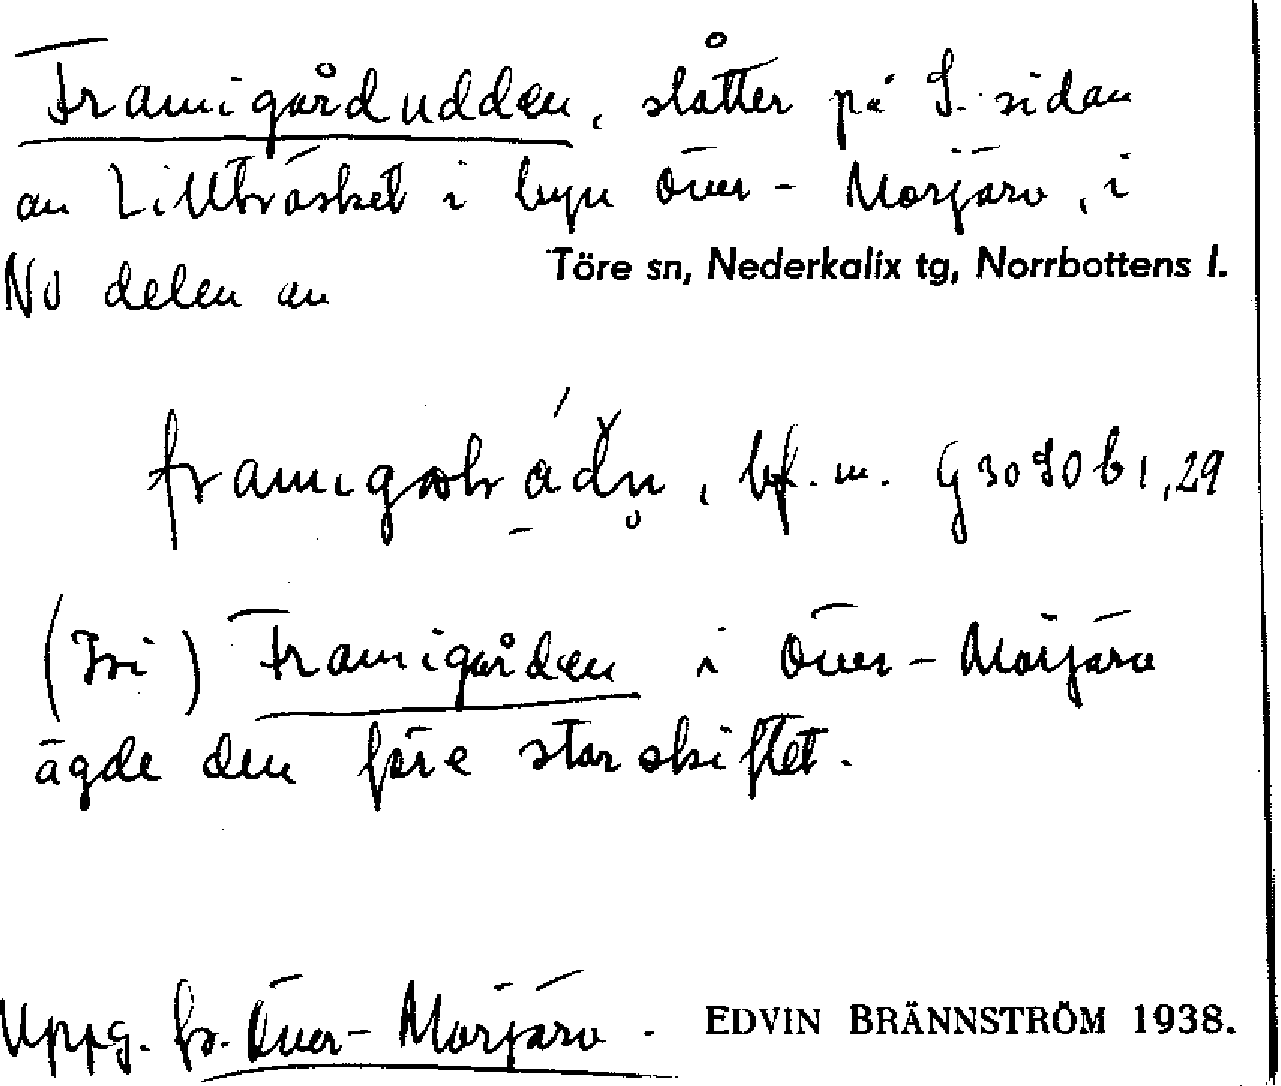 Framigårdudden, slåtter på S. sidan
av Lillträsket i byn Över-Morjärv, i
NV delen av Töre sn, Nederkalix tg, Norrbottens l.
bf. m. G3090b1,29
( ) Framigården i Över-Morjärv
ägde den före storskiftet.
Uppg. fr. Över-Morjärv. EDVIN BRÄNNSTRÖM 1938.